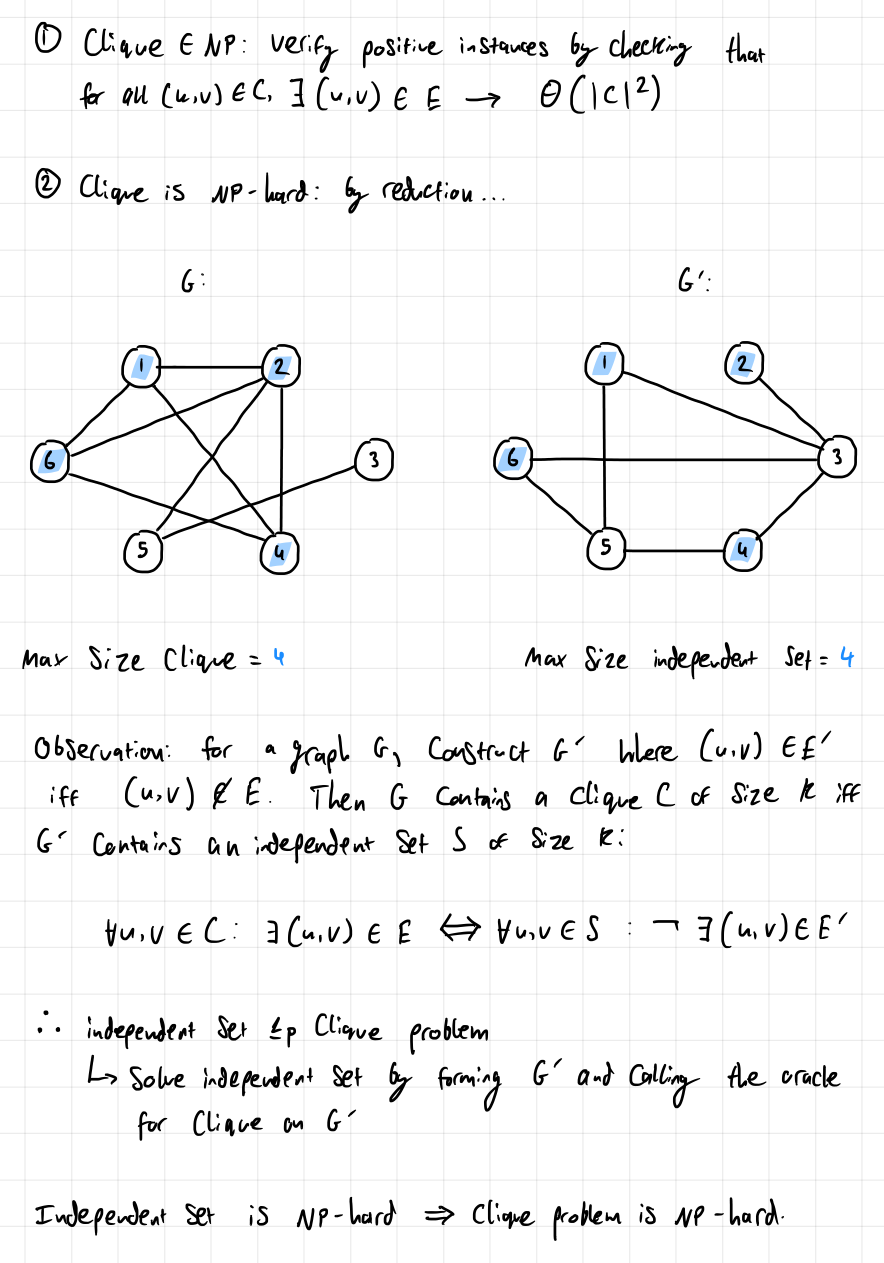 ① Clique ∈ NP: verify positive instances by checking that
for all (u,v) ∈ C, ∃ (u,v) ∈ E → Θ(|C|²)
② Clique is NP-hard: by reduction...
G:
G′:
1
2
6
3
5
4
1
2
6
3
5
4
Max Size Clique = 4
Max Size independent Set = 4
Observation: for a graph G, Construct G′ where (u,v) ∈ E′
iff (u,v) ∉ E. Then G Contains a Clique C of Size k iff
G′ Contains an independent Set S of Size k:
∀u,v ∈ C: ∃(u,v) ∈ E ⟺ ∀u,v ∈ S : ¬ ∃(u,v) ∈ E′
∴ independent Set ≤p Clique problem
↳ Solve independent Set by forming G′ and Calling the oracle
for Clique on G′
Independent Set is NP-hard ⇒ Clique problem is NP-hard.